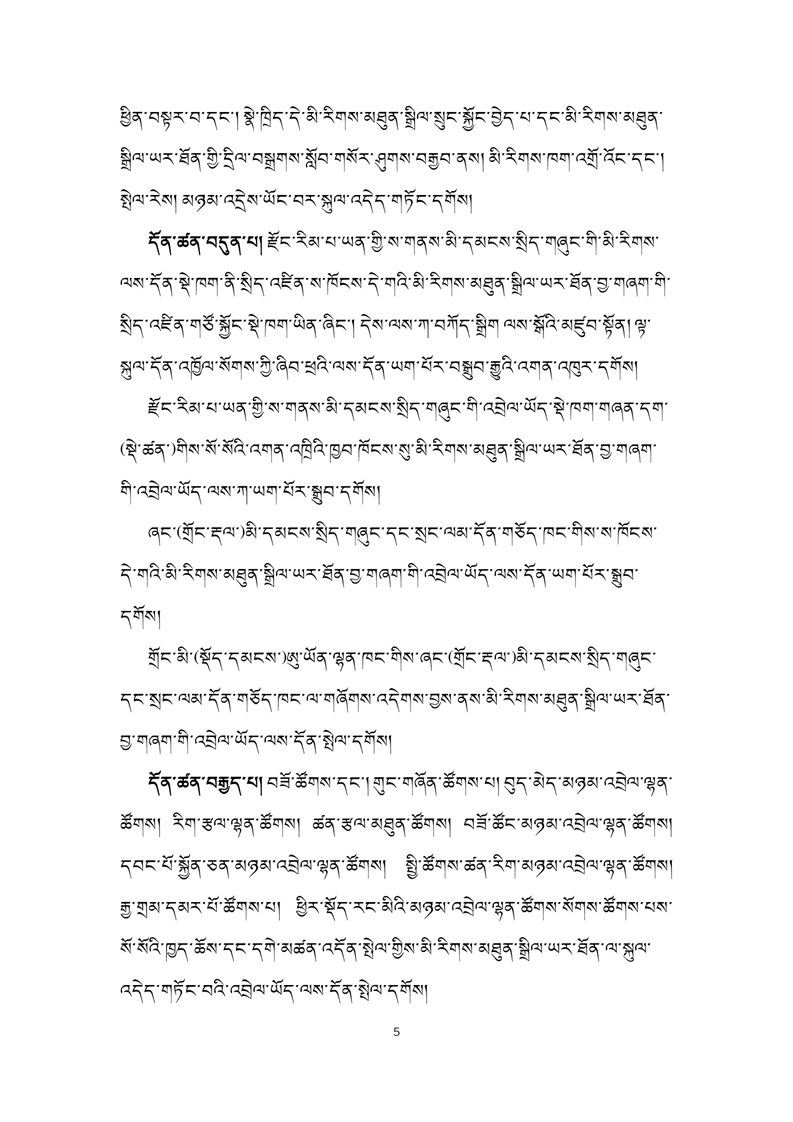 ཕྱིན་བསྟར་བ་དང་། སྣེ་ཁྲིད་དེ་མི་རིགས་མཐུན་སྒྲིལ་སྲུང་སྐྱོང་བྱེད་པ་དང་མི་རིགས་མཐུན་
སྒྲིལ་ཡར་ཐོན་གྱི་དྲིལ་བསྒྲགས་སློབ་གསོར་ཤུགས་བརྒྱབ་ནས། མི་རིགས་ཁག་འགྲོ་འོང་དང་།
སྤེལ་རེས། མཉམ་འདྲེས་ཡོང་བར་སྐུལ་འདེད་གཏོང་དགོས།
དོན་ཚན་བདུན་པ། རྫོང་རིམ་པ་ཡན་གྱི་ས་གནས་མི་དམངས་སྲིད་གཞུང་གི་མི་རིགས་
ལས་དོན་སྡེ་ཁག་ནི་སྲིད་འཛིན་ས་ཁོངས་དེ་གའི་མི་རིགས་མཐུན་སྒྲིལ་ཡར་ཐོན་བྱ་གཞག་གི་
སྲིད་འཛིན་གཙོ་སྐྱོང་སྡེ་ཁག་ཡིན་ཞིང་། དེས་ལས་ཀ་བཀོད་སྒྲིག ལས་སྒོའི་མཛུབ་སྟོན། ལྟ་
སྐུལ་དོན་འཁྱོལ་སོགས་ཀྱི་ཞིབ་ཕྲའི་ལས་དོན་ཡག་པོར་བསྒྲུབ་རྒྱུའི་འགན་འཁུར་དགོས།
རྫོང་རིམ་པ་ཡན་གྱི་ས་གནས་མི་དམངས་སྲིད་གཞུང་གི་འབྲེལ་ཡོད་སྡེ་ཁག་གཞན་དག་
(སྡེ་ཚན་)གིས་སོ་སོའི་འགན་འཁྲིའི་ཁྱབ་ཁོངས་སུ་མི་རིགས་མཐུན་སྒྲིལ་ཡར་ཐོན་བྱ་གཞག་
གི་འབྲེལ་ཡོད་ལས་ཀ་ཡག་པོར་སྒྲུབ་དགོས།
ཞང་(གྲོང་རྡལ་)མི་དམངས་སྲིད་གཞུང་དང་སྲང་ལམ་དོན་གཅོད་ཁང་གིས་ས་ཁོངས་
དེ་གའི་མི་རིགས་མཐུན་སྒྲིལ་ཡར་ཐོན་བྱ་གཞག་གི་འབྲེལ་ཡོད་ལས་དོན་ཡག་པོར་སྒྲུབ་
དགོས།
གྲོང་མི་(སྡོད་དམངས་)ཨུ་ཡོན་ལྷན་ཁང་གིས་ཞང་(གྲོང་རྡལ་)མི་དམངས་སྲིད་གཞུང་
དང་སྲང་ལམ་དོན་གཅོད་ཁང་ལ་གཞོགས་འདེགས་བྱས་ནས་མི་རིགས་མཐུན་སྒྲིལ་ཡར་ཐོན་
བྱ་གཞག་གི་འབྲེལ་ཡོད་ལས་དོན་སྤེལ་དགོས།
དོན་ཚན་བརྒྱད་པ། བཟོ་ཚོགས་དང་། གུང་གཞོན་ཚོགས་པ། བུད་མེད་མཉམ་འབྲེལ་ལྷན་
ཚོགས། རིག་རྩལ་ལྷན་ཚོགས། ཚན་རྩལ་མཐུན་ཚོགས། བཟོ་ཚོང་མཉམ་འབྲེལ་ལྷན་ཚོགས།
དབང་པོ་སྐྱོན་ཅན་མཉམ་འབྲེལ་ལྷན་ཚོགས། སྤྱི་ཚོགས་ཚན་རིག་མཉམ་འབྲེལ་ལྷན་ཚོགས།
རྒྱ་གྲམ་དམར་པོ་ཚོགས་པ། ཕྱིར་སྡོད་རང་མིའི་མཉམ་འབྲེལ་ལྷན་ཚོགས་སོགས་ཚོགས་པས་
སོ་སོའི་ཁྱད་ཆོས་དང་དགེ་མཚན་འདོན་སྤེལ་གྱིས་མི་རིགས་མཐུན་སྒྲིལ་ཡར་ཐོན་ལ་སྐུལ་
འདེད་གཏོང་བའི་འབྲེལ་ཡོད་ལས་དོན་སྤེལ་དགོས།
5